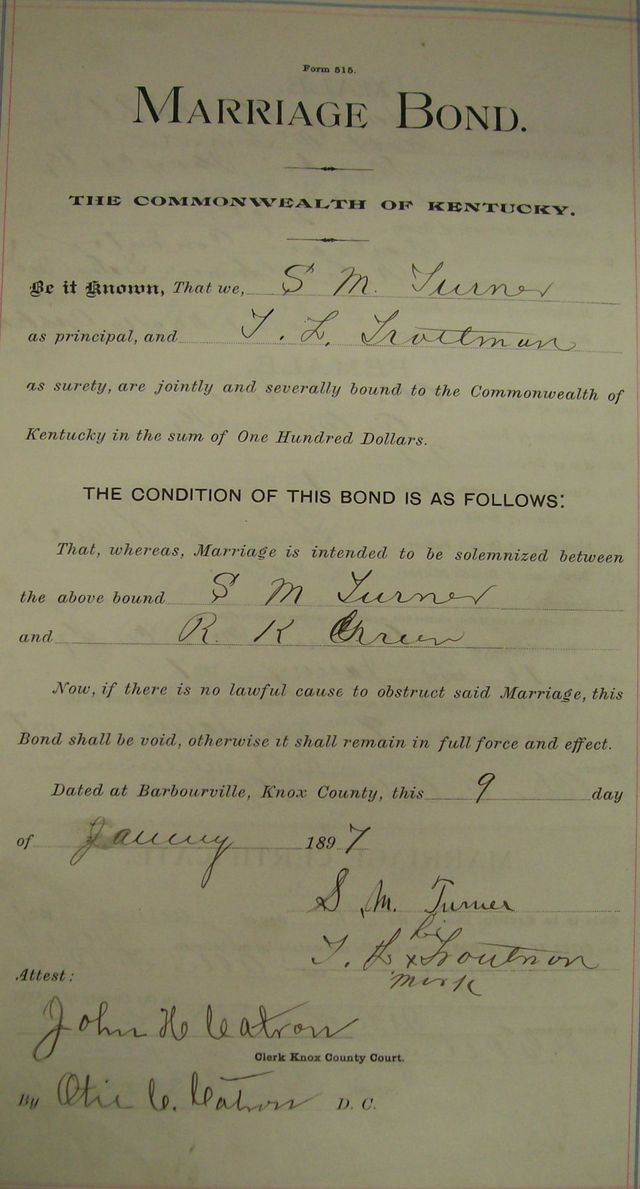 Form 515.
MARRIAGE BOND.
THE COMMONWEALTH OF KENTUCKY.
Be it Known, That we, S M. Turner
as principal, and T. L. Troutman
as surety, are jointly and severally bound to the Commonwealth of
Kentucky in the sum of One Hundred Dollars.
THE CONDITION OF THIS BOND IS AS FOLLOWS:
That, whereas, Marriage is intended to be solemnized between
the above bound S M Turner
and R. K Green
Now, if there is no lawful cause to obstruct said Marriage, this
Bond shall be void, otherwise it shall remain in full force and effect.
Dated at Barbourville, Knox County, this 9 day
of January 1897
S. M. Turner
his
T. L x Troutman
mark
Attest:
John H Catron
Clerk Knox County Court.
By C. Catron D. C.